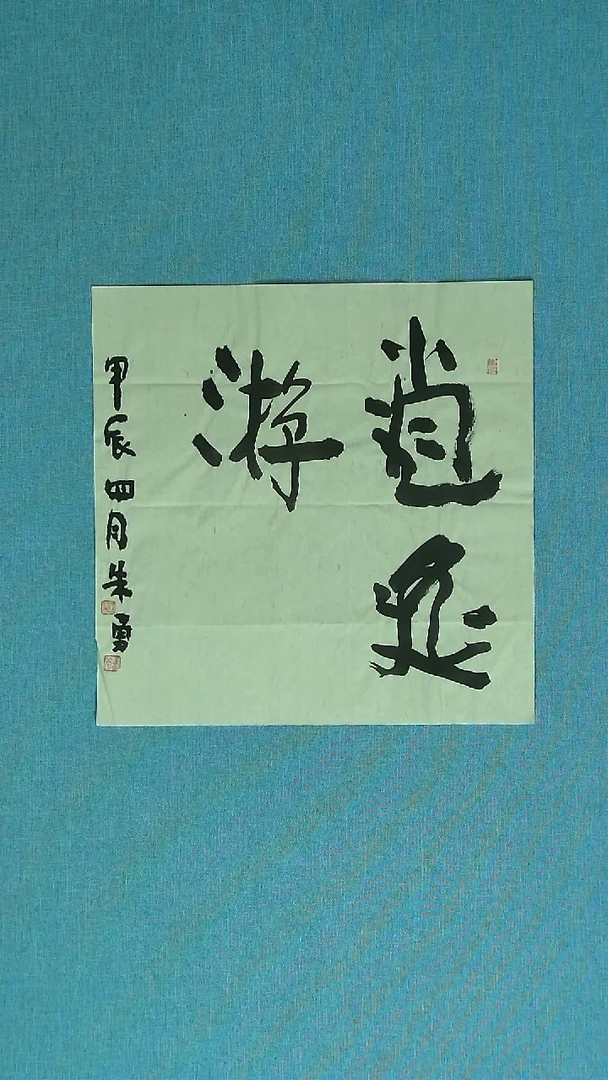 逍遥
游
甲辰四月朱勇